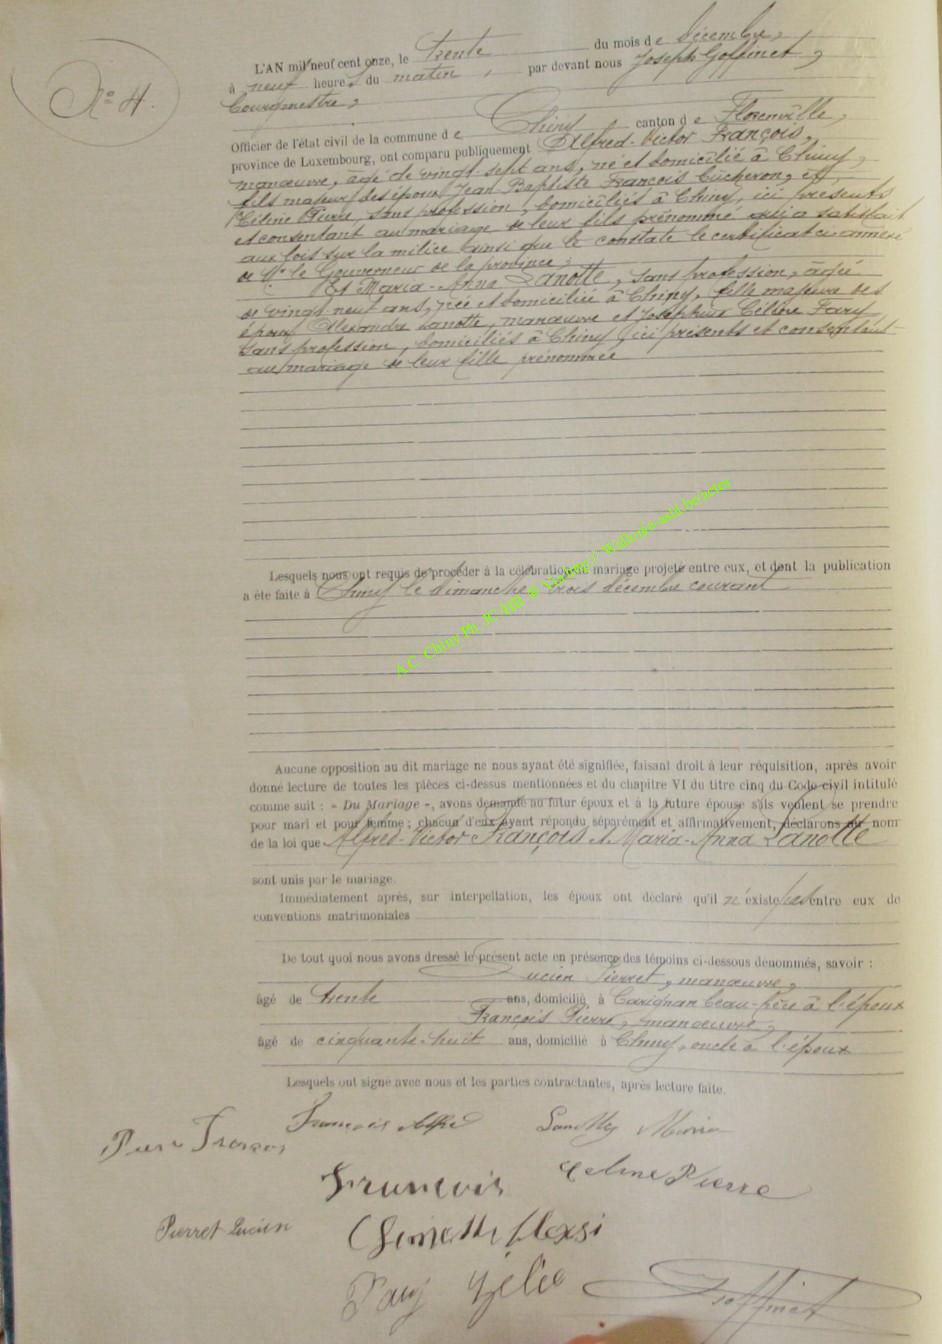 N° 4.
L'AN mil neuf cent onze, le trente du mois de décembre,
à neuf heures du matin, par devant nous Joseph Goffinet,
bourgmestre,
Officier de l'état civil de la commune de Chiny canton de Florenville,
province de Luxembourg, ont comparu publiquement Alfred-Victor François,
manœuvre, âgé de vingt-sept ans, né et domicilié à Chiny,
fils majeur des époux Jean Baptiste François Cucheron, et
Céline Pierre, sans profession, domiciliés à Chiny, ici présents
et consentant au mariage de leur fils prénommé qui a satisfait
aux lois sur la milice ainsi que le constate le certificat ci-annexé
de Mr le Gouverneur de la province;
Et Maria-Anna Lanotte, sans profession, âgée
de vingt neuf ans, née et domiciliée à Chiny, fille majeure des
époux Alexandre Lanotte, manœuvre et Joséphine Céline Fary
sans profession, domiciliés à Chiny, ici présents et consentant
au mariage de leur fille prénommée
Lesquels nous ont requis de procéder à la célébration du mariage projeté entre eux, et dont la publication
a été faite à Chiny le dimanche trois décembre courant
A.C. Chiny Ph.
Aucune opposition au dit mariage ne nous ayant été signifiée, faisant droit à leur réquisition, après avoir
donné lecture de toutes les pièces ci-dessus mentionnées et du chapitre VI du titre cinq du Code civil intitulé
comme suit : « Du Mariage », avons demandé au futur époux et à la future épouse s'ils veulent se prendre
pour mari et pour femme ; chacun d'eux ayant répondu séparément et affirmativement, déclarons au nom
de la loi que Alfred-Victor François et Maria-Anna Lanotte
sont unis par le mariage.
Immédiatement après, sur interpellation, les époux ont déclaré qu'il n'existe pas entre eux de
conventions matrimoniales
De tout quoi nous avons dressé le présent acte en présence des témoins ci-dessous dénommés, savoir :
Lucien Pierret, manœuvre,
âgé de trente ans, domicilié à Carignan beau-frère à l'époux
François Pierre, manœuvre,
âgé de cinquante-huit ans, domicilié à Chiny, oncle à l'époux
Lesquels ont signé avec nous et les parties contractantes, après lecture faite.
François Alfred
Maria
Pierre François
François
Céline Pierre
Pierret Lucien
Goffinet